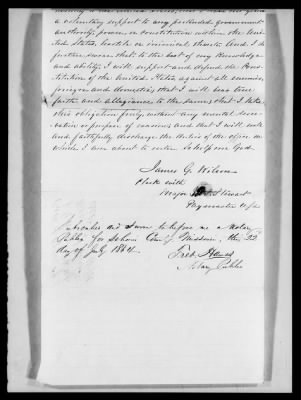 a voluntary support to any pretended government
authority, power, or constitution within the Uni-
ted States, hostile or inimical thereto. And I do
further swear that to the best of my knowledge
and ability, I will support and defend the Con-
stitution of the United States, against all enemies,
foreign and domestic; that I will bear true
faith and allegiance to the same; that I take
this obligation freely, without any mental reser-
vation or purpose of evasion; and that I will well
and faithfully discharge the duties of the office on
which I am about to enter. So help me God.
James G. Wilson
Clerk with
Major Stewart
Paymaster U.S.A.
Subscribed and Sworn to before me a Notary
Public for St Louis County, Missouri, this 22
day of July 1864.
Fred.
Notary Public